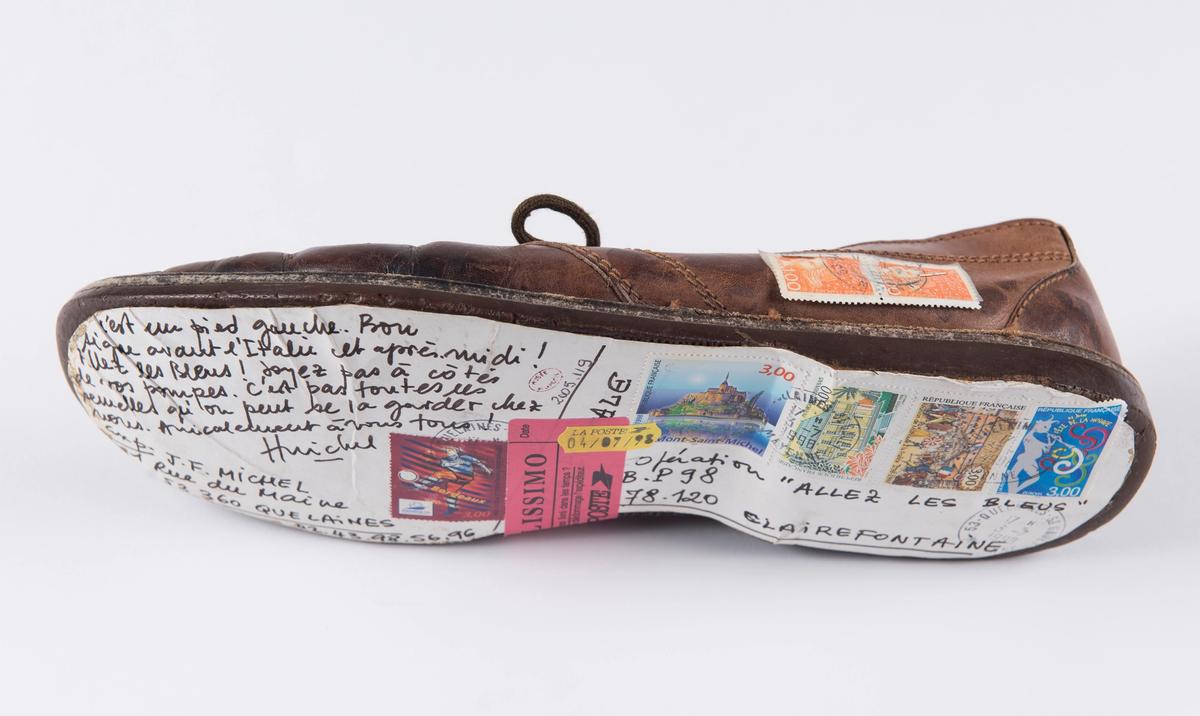 c'est un pied gauche. Bon
signe avant l'Italie cet après-midi !
Allez les Bleus ! soyez pas à côtés
de vos pompes. C'est pas toutes les
semelles qu'on peut se la garder chez
vous. Amicalement à vous tous !
Michel
Exp. J.F. MICHEL
Rue du Maine
53.360 QUELAINES
02.43.98.56.96
2005.119
ALE
LISSIMO
Date
LA POSTE
04/07/98
POSTE
Opération "ALLEZ LES BLEUS"
B.P 98
78.120
CLAIREFONTAINE
Bordeaux
3,00
RÉPUBLIQUE FRANÇAISE
3,00
Mont-Saint-Michel
RÉPUBLIQUE FRANÇAISE
3,00
RÉPUBLIQUE FRANÇAISE
3,00
1,00